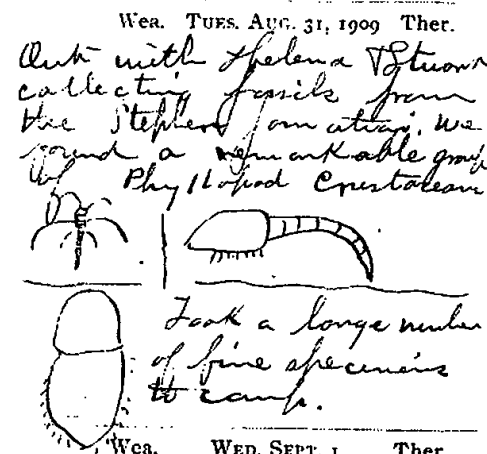 Wea. TUES. AUG. 31, 1909 Ther.
Out with Helena & Stuart
collecting fossils from
the Stephen formation. We
found a remarkable group
of Phyllopod Crustaceans
Took a large number
of fine specimens
to camp.
Wea. WED. SEPT. 1 Ther.